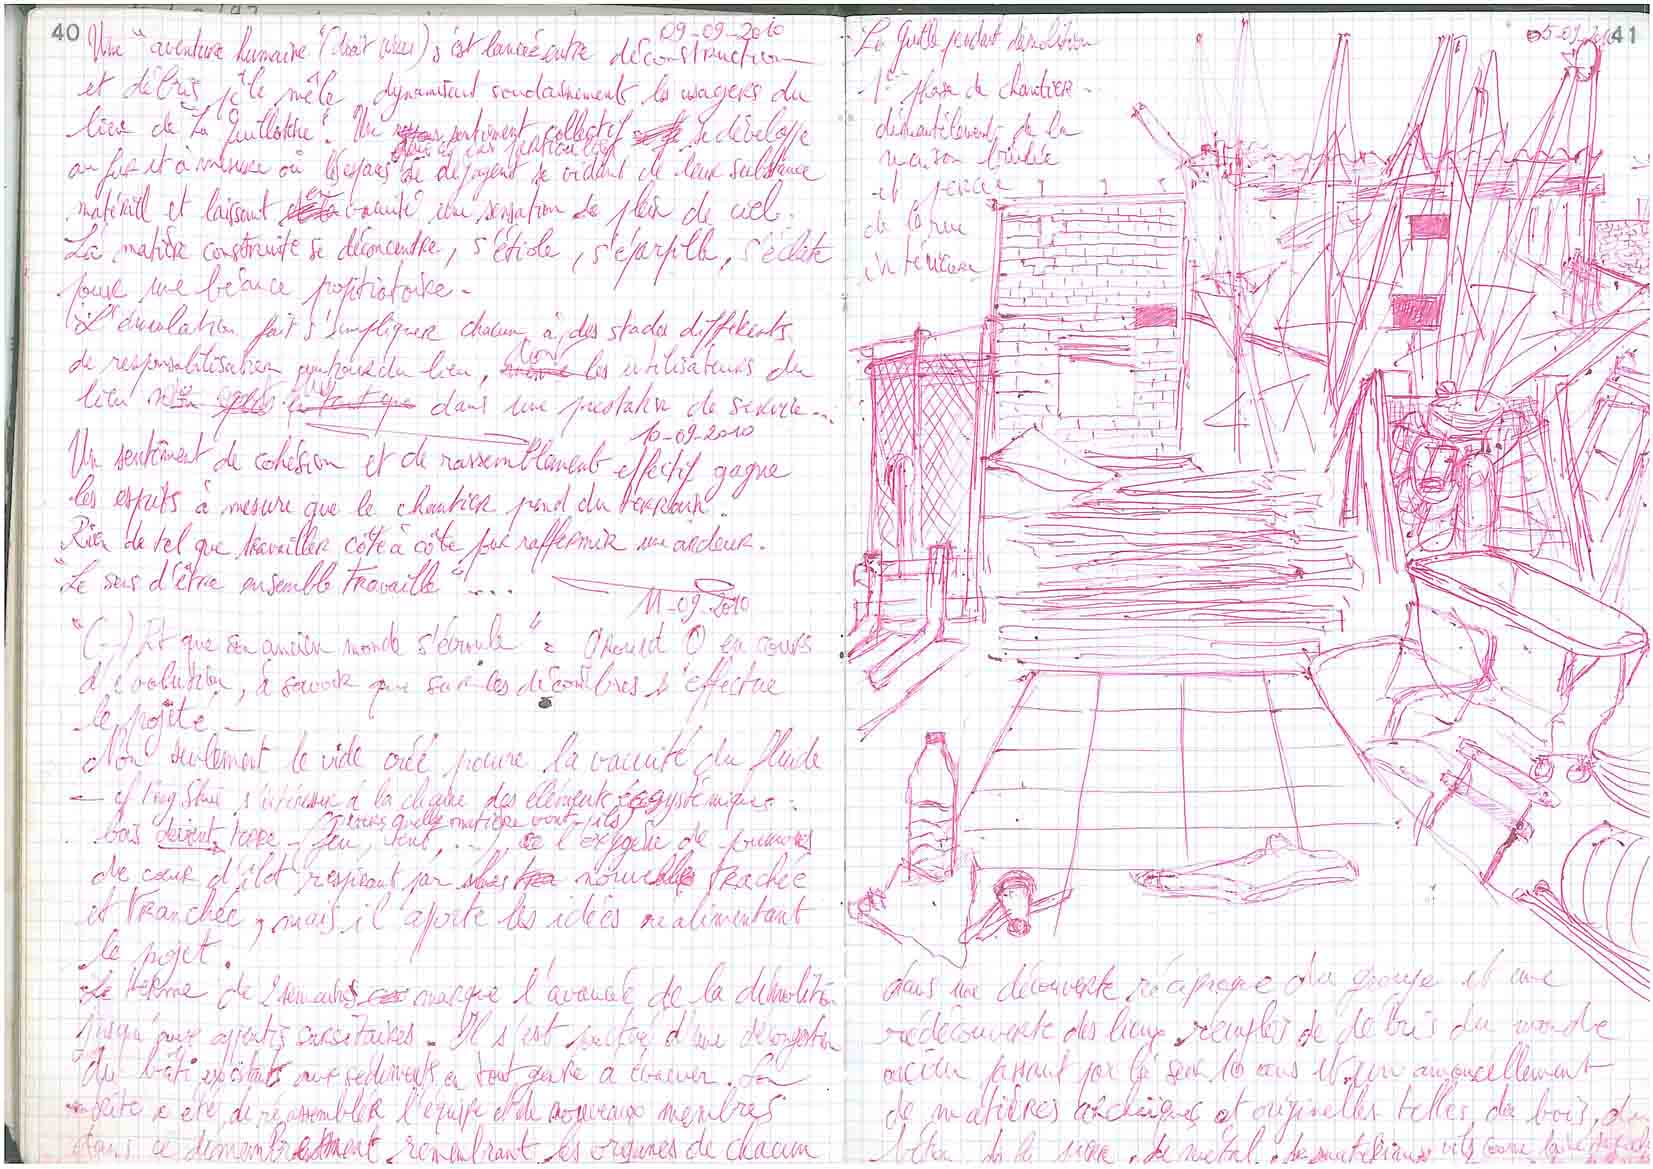 40
09-09-2010
Une "aventure humaine" (doit vivre) s'est lancée entre déconstruction
et débris pêle mêle dynamisant soudainement les usagers du
lieu de "La Guillotière". Un sentiment collectif se développe
dans ce cas particulier
au fur et à mesure où les espaces se dégagent se vidant de leur substance
matériell et laissant en vacuité une sensation de plein de ciel.
La matière construite se déconcentre, s'étiole, s'éparpille, s'éclate
pour une béance propitiatoire.
L'émulation fait s'impliquer chacun à des stades différents
de responsabilisation autour du lieu, les utilisateurs du
lieu dans une prestation de service...
10-09-2010
Un sentiment de cohésion et de rassemblement effectif gagne
les esprits à mesure que le chantier prend du terrain.
Rien de tel que travailler côte à côte pour raffermir une ardeur.
"Le sens d'être ensemble travaille" ....
11-09-2010
"(-) Et que son ancien monde s'écroule" = en cours
d'évolution, à savoir que sur les décombres s'effectue
le projet.
Non seulement le vide créé pour la vacuité du fluide
- cf Feng Shui, s'intéresser à la chaîne des éléments écosystémiques :
vers quelle matière vont-ils ?
bois devient terre - feu, vent, ... l'oxygène de poumons
de cœur d'îlot respirant par nouvelle trachée
et tranchée, mais il apporte les idées réalimentant
le projet.
Le terme de 2 semaines marque l'avancée de la démolition
jusqu'aux appentis sanitaires. Il s'est d'une décongestion
du bâti existants aux sédiments en tout genre à évacuer. La
suite a été de réassembler l'équipe et de nouveaux membres
dans ce démembrement remembrant les organes de chacun
41
05-09-2010
La Guille pendant démolition
1ère phase de chantier -
démantèlement de la
maison brûlée
et percée
de la rue
intérieure
dans une découverte réciproque du groupe et une
redécouverte des lieux remplis de débris du monde
ancien passant par là sur 10 ans et un amoncellement
de matières archaïques et originelles telles du bois, du
béton, de la terre, de métal,